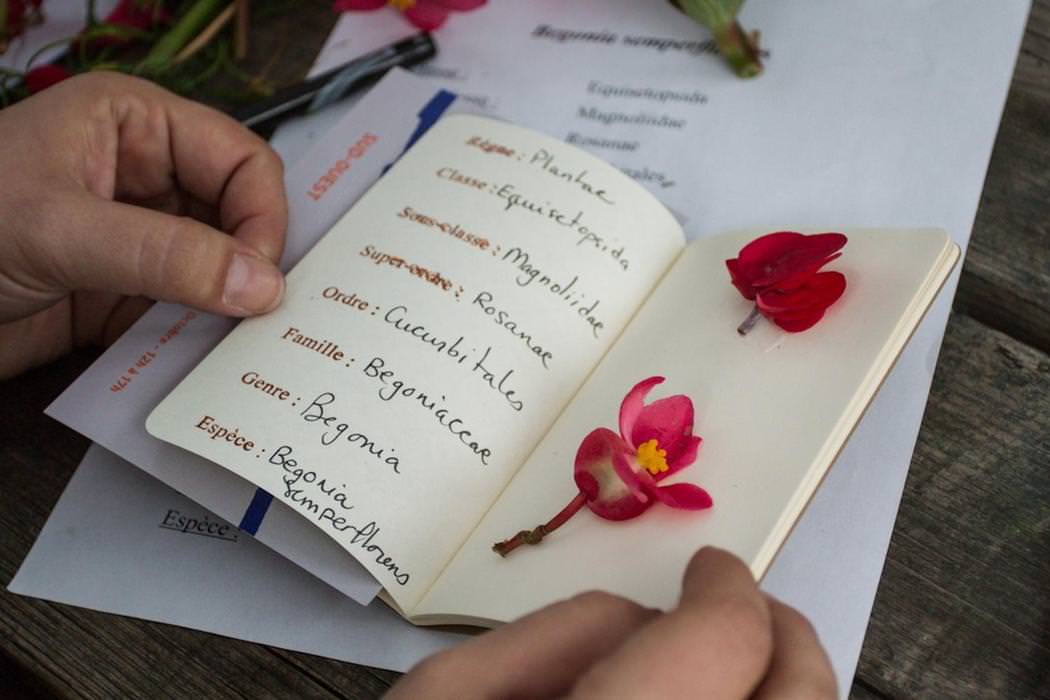 Begonia
Equisetopsida
Magnoliidae
Rosanae
SUD-OUEST
Octobre - 12h à 17h
Règne : Plantae
Classe : Equisetopsida
Sous-classe : Magnoliidae
Super-ordre : Rosanae
Ordre : Cucurbitales
Famille : Begoniaceae
Genre : Begonia
Espèce : Begonia
semperflorens
Espèce :